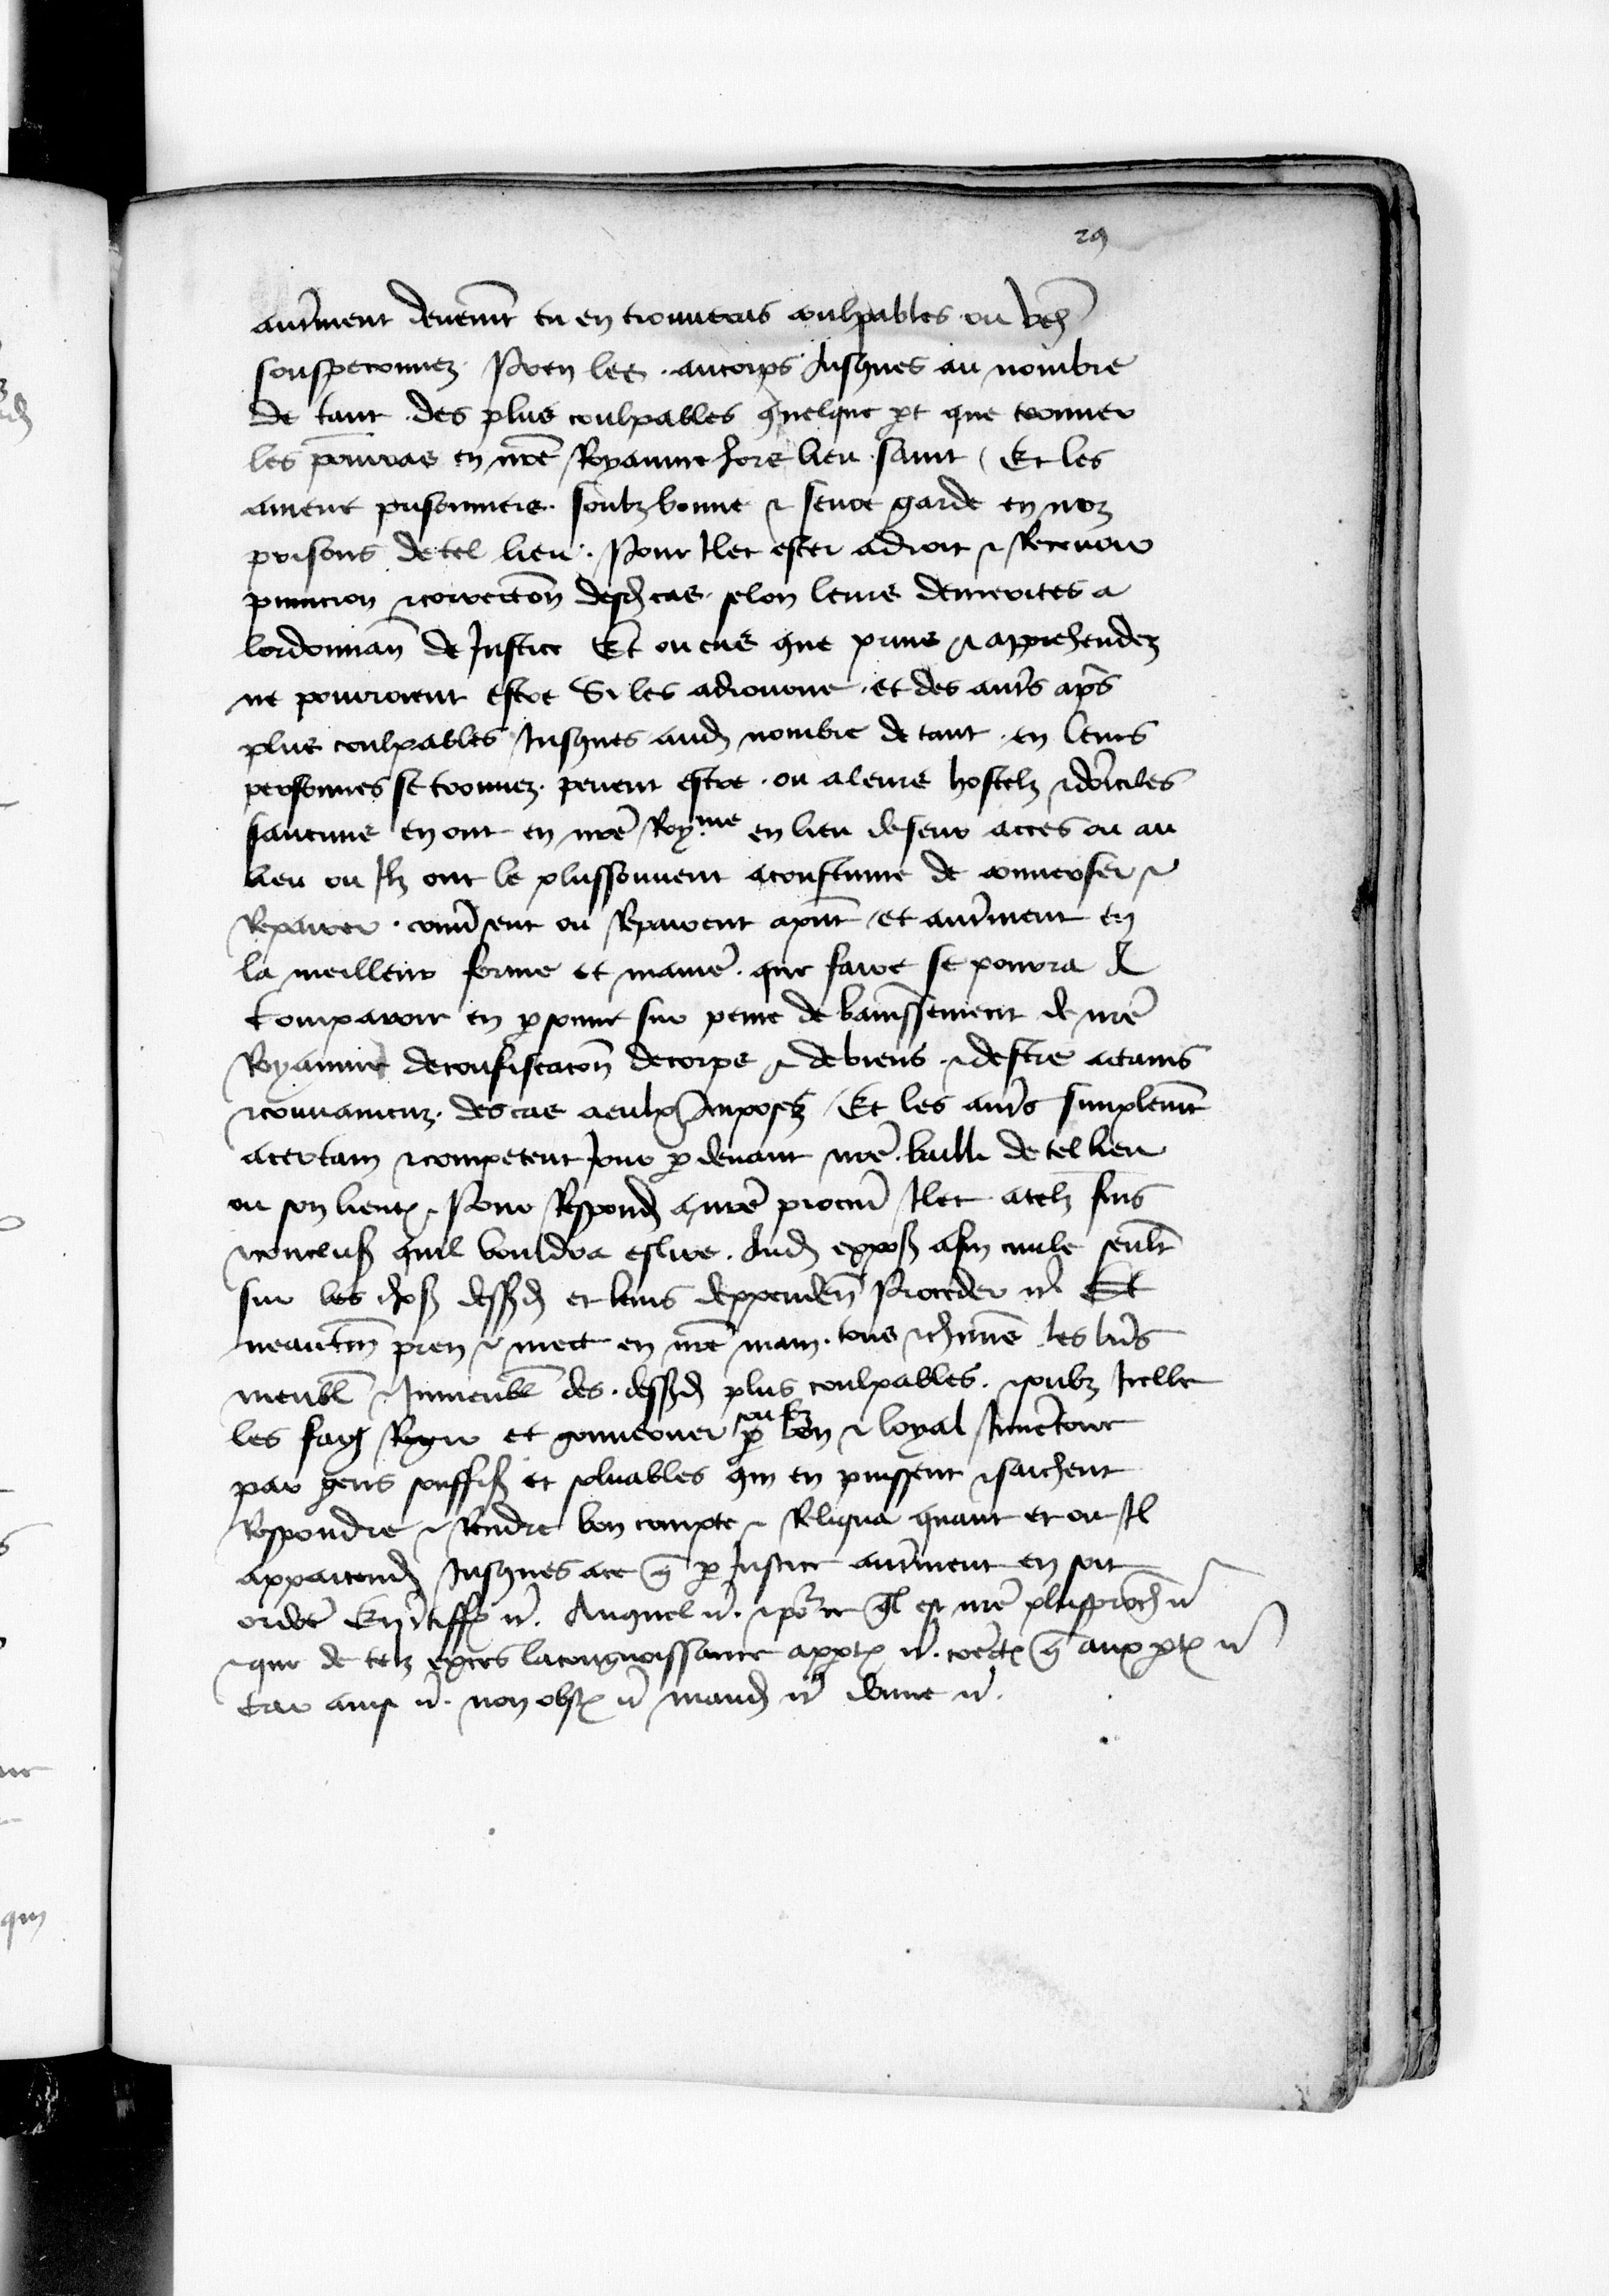 29
aut̃ment deuem̃t tu en trouueras coulpables ou veh̃
souspeconnez Pren les aucorps Jusques au nombre
de tant des plus coulpables quelque p̃t que trouuer
les pourras en nr̃e Royaume hors lieu saint Et les
amene prisonniers soubz bonne et seure garde en noz
prisons de tel lieu Pour Illec ester adroit et Receuoir
punicion et correctoñ desd cas selon leurs demerites a
lordonnañ de Justice Et ou cas que prins et apprehendez
ne pourroient estre Si les adiourne et des aut̃s ap̃s
plus coulpables Jusques aud nombre de tant en leurs
personnes se trouuez peuent estre ou a leurs hostelz et doĩciles
saucuns en ont en nr̃e Roy.me en lieu de seur acces ou au
lieu ou Ilz ont le plussouuent acoustume de conuerser et
Repairer conũsent ou Repairent apñt et aut̃ment en
la meilleur forme et manie᷉ que faire se pourra A
Comparoir en p̱sonne sur peine de bannissement de nr̃e
Royaume de confiscacoñ de corps et de biens et destre actains
et conuaincuz des cas a eulx Imposez Et les aut̃s simplem̃t
a certain et competent Jour p̱ deuant nr̃e bailli de tel lieu
ou son lieuten̄ Pour Respond a nr̃e procur̃ Illec a telz fins
et conclus̃ quil vouldra eslire Aud expos̃ afin ciuile seulem̃t
sur les chos̃ dessusd et leurs deppendeñ Proceder ec̃ Et
neautm̃ pren et mect en nr̃e main tous et chũns les biẽs
meubl̃ et Inmeubl̃ des dessusd plus coulpables et soubz Icelle
les fay Regir et gouuerner soubz p̱ bon et loyal Inuẽtoire
par gens souffis̃ et soluables qui en puissent et saichent
Respondre et Rendre bon compte et Reliqua quant et ou Il
appartend Jusques a ce q̃ p̱ Justice aut̃ment en soit
ordõe En c̃tiff̃ ec̃ Auquel ec̃ et po᷉ ce q̃l est nr̃e plusproch̃ ec̃
et que de telz exces la congnoissance app̱t ec̃ q̃ aux p̱t ec̃
Car ainsi ec̃ non obst ec̃ mand ec̃ donne ec̃